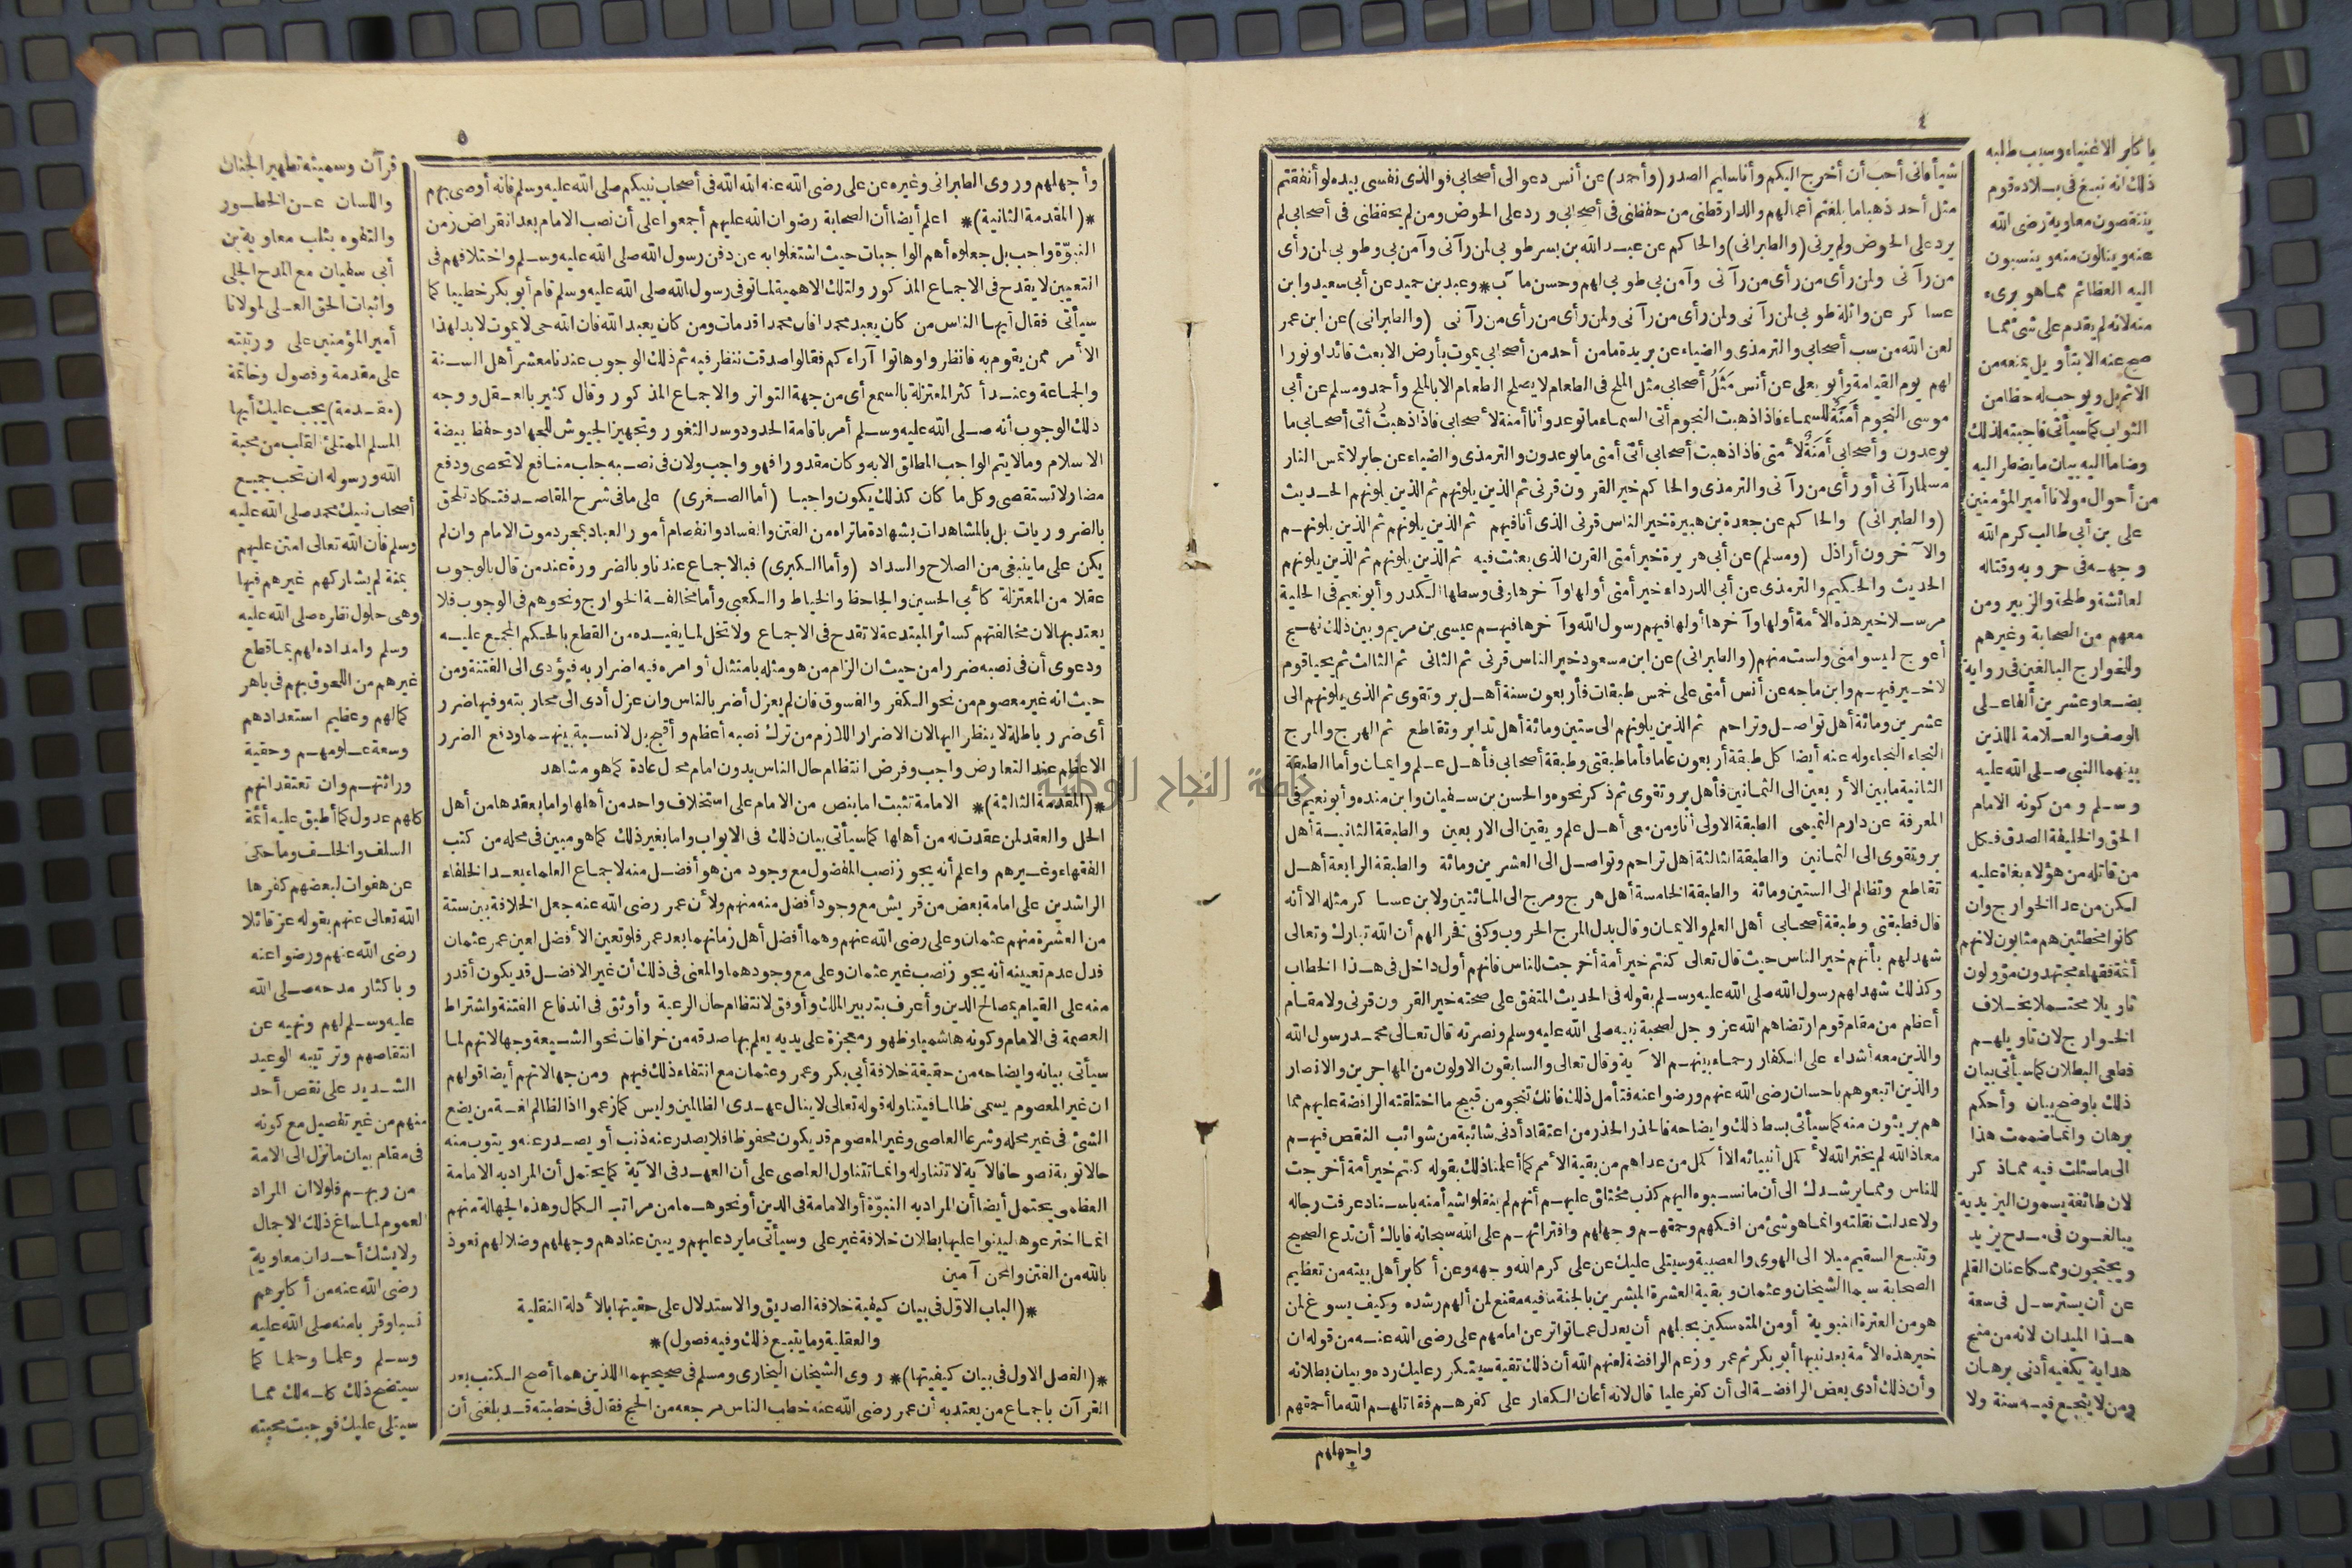 ٤
شيأ فانى أحب أن أخرج اليكم وأنا سليم الصدر (وأحمد) عن أنس دعوا لى أصحابى فوالذى نفسى بيده لو أنفقتم
مثل أحد ذهبا ما بلغتم أعمالهم والدارقطنى من حفظنى فى أصحابى ورد على الحوض ومن لم يحفظنى فى أصحابى لم
يرد على الحوض ولم يرنى (والطبرانى) والحاكم عن عبد الله بن بسر طوبى لمن رآنى وآمن بى وطوبى لمن رأى
من رآنى ولمن رأى من رأى من رآنى وآمن بى طوبى لهم وحسن مآب * وعبد بن حميد عن أبى سعيد وابن
عساكر عن واثلة طوبى لمن رآنى ولمن رأى من رآنى ولمن رأى من رأى من رآنى (والطبرانى) عن ابن عمر
لعن الله من سب أصحابى والترمذى والضياء عن بريدة ما من أحد من أصحابى يموت بأرض الا بعث قائدا ونورا
لهم يوم القيامة وأبو يعلى عن أنس مَثَلُ أصحابى مثل الملح فى الطعام لا يصلح الطعام الا بالملح وأحمد ومسلم عن أبى
موسى النجوم أَمَنَةٌ للسماء فاذا ذهبت النجوم أتى السماء ما توعد وأنا أمنة لأصحابى فاذا ذهبتُ أتى أصحابى ما
يوعدون وأصحابى أَمَنَةٌ لأمتى فاذا ذهبت أصحابى أتى أمتى ما يوعدون والترمذى والضياء عن جابر لا تمس النار
مسلما رآنى أو رأى من رآنى والترمذى والحاكم خير القرون قرنى ثم الذين يلونهم ثم الذين يلونهم الحديث
(والطبرانى) والحاكم عن جعدة بن هبيرة خير الناس قرنى الذى أنا فيهم ثم الذين يلونهم ثم الذين يلونهم
والآخرون أراذل (ومسلم) عن أبى هريرة خير أمتى القرن الذى بعثت فيه ثم الذين يلونهم ثم الذين يلونهم
الحديث والحكيم والترمذى عن أبى الدرداء خير أمتى أولها وآخرها وفى وسطها الكدر وأبو نعيم فى الحلية
مرسلا خير هذه الأمة أولها وآخرها أولها فيهم رسول الله وآخرها فيهم عيسى بن مريم وبين ذلك نهج
أعوج ليسوا منى ولست منهم (والطبرانى) عن ابن مسعود خير الناس قرنى ثم الثانى ثم الثالث ثم يجيا قوم
لا خير فيهم وابن ماجه عن أنس أمتى على خمس طبقات فأربعون سنة أهل بر وتقوى ثم الذى يلونهم الى
عشرين ومائة أهل تواصل وتراحم ثم الذين يلونهم الى ستين ومائة أهل تدابر وتقاطع ثم الهرج والمرج
النجاء النجاء وله عنه أيضا كل طبقة أربعون عاما فأما طبقتى وطبقة أصحابى فأهل علم وايمان وأما الطبقة
الثانية ما بين الأربعين الى الثمانين فأهل بر وتقوى ثم ذكر نحوه والحسن بن سفيان وابن منده وأبو نعيم فى
المعرفة عن دارم التميمى الطبقة الاولى أنا ومن معى أهل علم ويقين الى الاربعين والطبقة الثانية أهل
بر وتقوى الى الثمانين والطبقة الثالثة أهل تراحم وتواصل الى العشرين ومائة والطبقة الرابعة أهل
تقاطع وتظالم الى الستين ومائة والطبقة الخامسة أهل هرج ومرج الى المائتين ولابن عساكر مثله الا أنه
قال فطبقتى وطبقة أصحابى أهل العلم والايمان وقال بدل المرج الحروب وكفى فخرا لهم أن الله تبارك وتعالى
شهد لهم بأنهم خير الناس حيث قال تعالى كنتم خير أمة أخرجت للناس فانهم أول داخل فى هذا الخطاب
وكذلك شهد لهم رسول الله صلى الله عليه وسلم بقوله فى الحديث المتفق على صحته خير القرون قرنى ولا مقام
أعظم من مقام قوم ارتضاهم الله عز وجل لصحبة نبيه صلى الله عليه وسلم ونصرته قال تعالى محمد رسول الله
والذين معه أشداء على الكفار رحماء بينهم الآية وقال تعالى والسابقون الاولون من المهاجرين والانصار
والذين اتبعوهم باحسان رضى الله عنهم ورضوا عنه فتأمل ذلك فانك تنجو من قبيح ما اختلقته الرافضة عليهم مما
هم بريئون منه كما سيأتى بسط ذلك وايضاحه فالحذر الحذر من اعتقاد أدنى شائبة من شوائب النقص فيهم
معاذ الله لم يختر الله لأكمل أنبيائه الا أكمل من عداهم من بقية الأمم كما أعلمنا ذلك بقوله كنتم خير أمة أخرجت
للناس ومما يرشدك الى أن ما نسبوه اليهم كذب مختلق عليهم أنهم لم ينقلوا شيأ منه باسناد عرفت رجاله
ولا عدلت نقلته وانما هو شئ من افكهم وحمقهم وجهلهم وافترائهم على الله سبحانه فاياك أن تدع الصحيح
وتتبع السقيم ميلا الى الهوى والعصبية وسيتلى عليك عن على كرم الله وجهه وعن أكابر أهل بيته من تعظيم
الصحابة سيما الشيخان وعثمان وبقية العشرة المبشرين بالجنة ما فيه مقنع لمن ألهم رشده وكيف يسوغ لمن
هو من العترة النبوية أو من المتمسكين بحبلهم أن يعدل عما تواتر عن امامهم على رضى الله عنه من قوله ان
خير هذه الأمة بعد نبيها أبو بكر ثم عمر وزعم الرافضة لعنهم الله أن ذلك تقية سيتكرر عليك رده وبيان بطلانه
وأن ذلك أدى بعض الرافضة الى أن كفر عليا قال لانه أعان الكفار على كفرهم فقاتلهم الله ما أحمقهم
واجهلهم
يا كابر الاغنياء وسبب طلبه
ذلك أنه نبغ فى بلاده قوم
ينتقصون معاوية رضى الله
عنه وينالون منه وينسبون
اليه العظائم مما هو برىء
منه لانه لم يقدم على شئ مما
صح عنه الا بتأويل يمنعه من
الاثم بل ويوجب له حظا من
الثواب كما سيأتى فاجبته لذلك
وضاما اليه بيان ما يضطر اليه
من أحوال مولانا أمير المؤمنين
على بن أبى طالب كرم الله
وجهه فى حروبه وقتاله
لعائشة وطلحة والزبير ومن
معهم من الصحابة وغيرهم
وللخوارج البالغين فى رواية
بضعا وعشرين ألفا على
الوصف والعلامة اللذين
بينهما النبى صلى الله عليه
وسلم ومن كونه الامام
الحق والخليفة الصدق فكل
من قاتله من هؤلاء بغاة عليه
لكن من عدا الخوارج وان
كانوا مخطئين هم مثابون لانهم
أئمة فقهاء مجتهدون مؤولون
تاويلا محتملا بخلاف
الخوارج لان تاويلهم
قطعى البطلان كما سيأتى بيان
ذلك باوضح بيان وأحكم
برهان وانما ضممت هذا
الى ما سئلت فيه مما ذكر
لان طائفة يسمون اليزيدية
يبالغون فى مدح يزيد
ويحتجون ومسكا عنان القلم
عن أن يسترسل فى سعة
هذا الميدان لانه من منح
هداية يكفيه أدنى برهان
ومن لا ينجع فيه سنة ولا
٥
وأجهلهم وروى الطبرانى وغيره عن على رضى الله عنه الله الله فى أصحاب نبيكم صلى الله عليه وسلم فانه أوصى بهم
*(المقدمة الثانية)* اعلم أيضا أن الصحابة رضوان الله عليهم أجمعوا على أن نصب الامام بعد انقراض زمن
النبوّة واجب بل جعلوه أهم الواجبات حيث اشتغلوا به عن دفن رسول الله صلى الله عليه وسلم واختلافهم فى
التعيين لا يقدح فى الاجماع المذكور ولتلك الاهمية لما توفى رسول الله صلى الله عليه وسلم قام أبو بكر خطيبا كما
سيأتى فقال أيها الناس من كان يعبد محمدا فان محمدا قد مات ومن كان يعبد الله فان الله حى لا يموت لابد لهذا
الأمر ممن يقوم به فانظروا وهاتوا آراءكم فقالوا صدقت ننظر فيه ثم ذلك الوجوب عندنا معشر أهل السنة
والجماعة وعند أكثر المعتزلة بالسمع أى من جهة التواتر والاجماع المذكور وقال كثير بالعقل ووجه
ذلك الوجوب أنه صلى الله عليه وسلم أمر باقامة الحدود وسد الثغور وتجهيز الجيوش للجهاد وحفظ بيضة
الاسلام وما لا يتم الواجب المطلق الا به وكان مقدورا فهو واجب ولان فى نصبه جلب منافع لا تحصى ودفع
مضار لا تستقصى وكل ما كان كذلك يكون واجبا (أما الصغرى) على ما فى شرح المقاصد فتكاد تلحق
بالضروريات بل بالمشاهدات بشهادة ما تراه من الفتن والفساد وانفصام أمور العباد بمجرد موت الامام وان لم
يكن على ما ينبغى من الصلاح والسداد (وأما الكبرى) فبالاجماع عندنا وبالضرورة عند من قال بالوجوب
عقلا من المعتزلة كأبى الحسين والجاحظ والخياط والكعبى وأما مخالفة الخوارج ونحوهم فى الوجوب فلا
يعتد بها لان مخالفتهم كسائر المبتدعة لا تقدح فى الاجماع ولا تخل لما يفيده من القطع بالحكم المجمع عليه
ودعوى أن فى نصبه ضررا من حيث ان الزام من هو مثله بامتثال أوامره فيه اضرار به فيؤدى الى الفتنة ومن
حيث انه غير معصوم من نحو الكفر والفسوق فان لم يعزل أضر بالناس وان عزل أدى الى محاربته وفيها ضرر
أى ضرر باطلة لا ينظر اليها لان الاضرار اللازم من ترك نصبه أعظم وأقبح بل لا نسبة بينهما ودفع الضرر
الاعظم عند التعارض واجب وفرض انتظام حال الناس بدون امام محال عادة كما هو مشاهد
*(المقدمة الثالثة)* الامامة تثبت اما بنص من الامام على استخلاف واحد من أهلها واما بعقدها من أهل
الحل والعقد لمن عقدت له من أهلها كما سيأتى بيان ذلك فى الابواب واما بغير ذلك كما هو مبين فى محله من كتب
الفقهاء وغيرهم واعلم أنه يجوز نصب المفضول مع وجود من هو أفضل منه لاجماع العلماء بعد الخلفاء
الراشدين على امامة بعض من قريش مع وجود أفضل منه منهم ولأن عمر رضى الله عنه جعل الخلافة بين ستة
من العشرة منهم عثمان وعلى رضى الله عنهم وهما أفضل أهل زمانهما بعد عمر فلو تعين الأفضل لعين عمر عثمان
فدل عدم تعيينه أنه يجوز نصب غير عثمان وعلى مع وجودهما والمعنى فى ذلك أن غير الافضل قد يكون أقدر
منه على القيام بمصالح الدين وأعرف بتدبير الملك وأوفق لانتظام حال الرعية وأوثق فى اندفاع الفتنة واشتراط
العصمة فى الامام وكونه هاشميا وظهور معجزة على يديه يعلم بها صدقه من خرافات نحو الشيعة وجهالاتهم لما
سيأتى بيانه وايضاحه من حقيقة خلافة أبى بكر وعمر وعثمان مع انتفاء ذلك فيهم ومن جهالاتهم أيضا قولهم
ان غير المعصوم يسمى ظالما فيتناوله قوله تعالى لا ينال عهدى الظالمين وليس كما زعموا اذ الظالم لغة من يضع
الشئ فى غير محله وشرعا العاصى وغير المعصوم قد يكون محفوظا فلا يصدر عنه ذنب أو يصدر عنه ويتوب منه
حالا توبة نصوحا فالآية لا تتناوله وانما تتناول العاصى على أن العهد فى الآية كما يحتمل أن المراد به الامامة
العظمى يحتمل أيضا أن المراد به النبوّة أو الامامة فى الدين أو نحوهما من مراتب الكمال وهذه الجهالة منهم
انما اخترعوها ليبنوا عليها بطلان خلافة غير على وسيأتى ما يرد عليهم ويبين عنادهم وجهلهم وضلالهم نعوذ
بالله من الفتن والمحن آمين
*(الباب الاوّل فى بيان كيفية خلافة الصديق والاستدلال على حقيتها بالأدلة النقلية
والعقلية وما يتبع ذلك وفيه فصول)*
*(الفصل الاول فى بيان كيفيتها)* روى الشيخان البخارى ومسلم فى صحيحيهما اللذين هما أصح الكتب بعد
القرآن باجماع من يعتد به أن عمر رضى الله عنه خطب الناس مرجعه من الحج فقال فى خطبته قد بلغنى أن
قرآن وسميته تطهير الجنان
واللسان عن الخطور
والتفوه بثلب معاوية بن
أبى سفيان مع المدح الجلى
واثبات الحق العلى لمولانا
أمير المؤمنين على ورتبته
على مقدمة وفصول وخاتمة
(مقدمة) يجب عليك أيها
المسلم الممتلئ القلب من محبة
الله ورسوله ان تحب جميع
أصحاب نبيك محمد صلى الله عليه
وسلم فان الله تعالى امتن عليهم
بمنة لم يشاركهم غيرهم فيها
وهى حلول نظره صلى الله عليه
وسلم وامداده لهم بما قطع
غيرهم من اللحوق بهم فى باهر
كمالهم وعظيم استعدادهم
وسعة علومهم وحقية
وراثتهم وان تعتقد انهم
كلهم عدول كما أطبق عليه أئمة
السلف والخلف وما حكى
عن هفوات لبعضهم كفرها
الله تعالى عنهم بقوله عز قائلا
رضى الله عنهم ورضوا عنه
وباكثار مدحه صلى الله
عليه وسلم لهم ونهيه عن
انتقاصهم وترتيبه الوعيد
الشديد على نقص أحد
منهم من غير تفصيل مع كونه
فى مقام بيان ما نزل الى الامة
من ربهم فلولا ان المراد
العموم لما ساغ ذلك الاجمال
ولا يشك أحد ان معاوية
رضى الله عنه من أكابرهم
نسبا وقربا منه صلى الله عليه
وسلم وعلما وحلما كما
سيتضح ذلك كله لك مما
سيتلى عليك فوجبت محبته
جامعة النجاح الوطنية